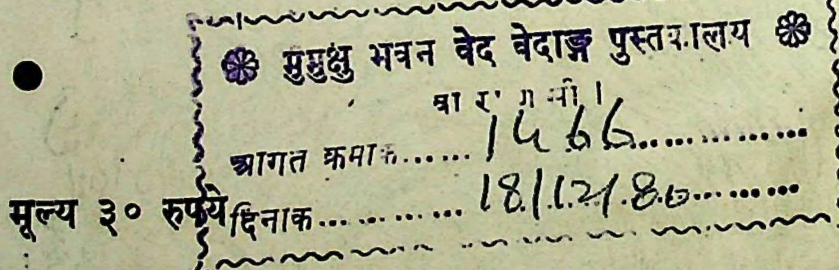 मुमुक्षु भवन वेद वेदाङ्ग पुस्तकालय
वाराणसी।
आगत क्रमाक...... 1466..............
मूल्य ३० रुपये
दिनाक............ 18/12/80........